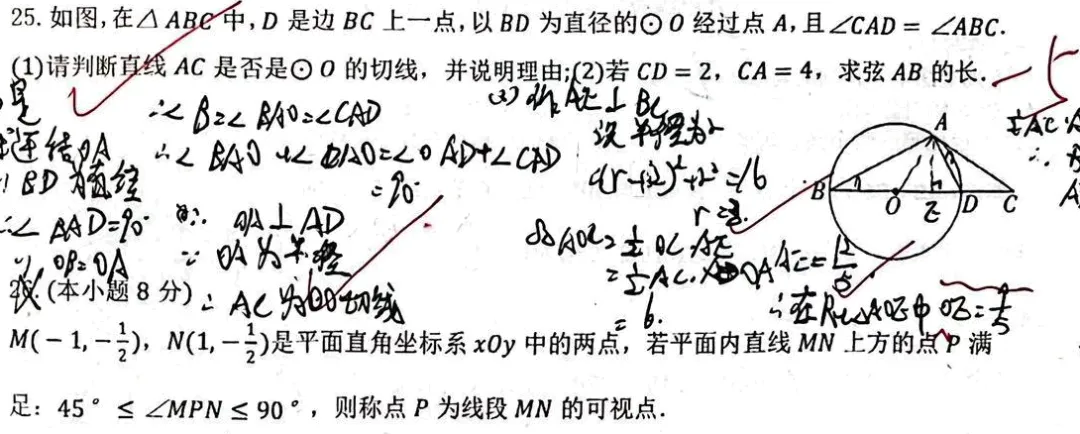 25. 如图,在△ABC中,D是边BC上一点,以BD为直径的⊙O经过点A,且∠CAD=∠ABC.
(1)请判断直线AC是否是⊙O的切线,并说明理由;(2)若CD=2,CA=4,求弦AB的长.
是
连结OA
BD为直径
∴∠BAD=90°
∵OB=OA
∴∠B=∠BAO=∠CAD
∴∠BAO+∠OAD=∠OAD+∠CAD
=90°
∴OA⊥AD
∵OA为半径
∴AC为⊙O切线
(2)作AE⊥BC
设半径为r
r=3.
S△AOC=½OC·AE
=½AC·OA
=6.
AE=12/5
∴在Rt△AOE中OE=9/5
A
B
O
E
D
C
(本小题8分)
M(-1,-½),N(1,-½)是平面直角坐标系xOy中的两点,若平面内直线MN上方的点P满
足:45°≤∠MPN≤90°,则称点P为线段MN的可视点.